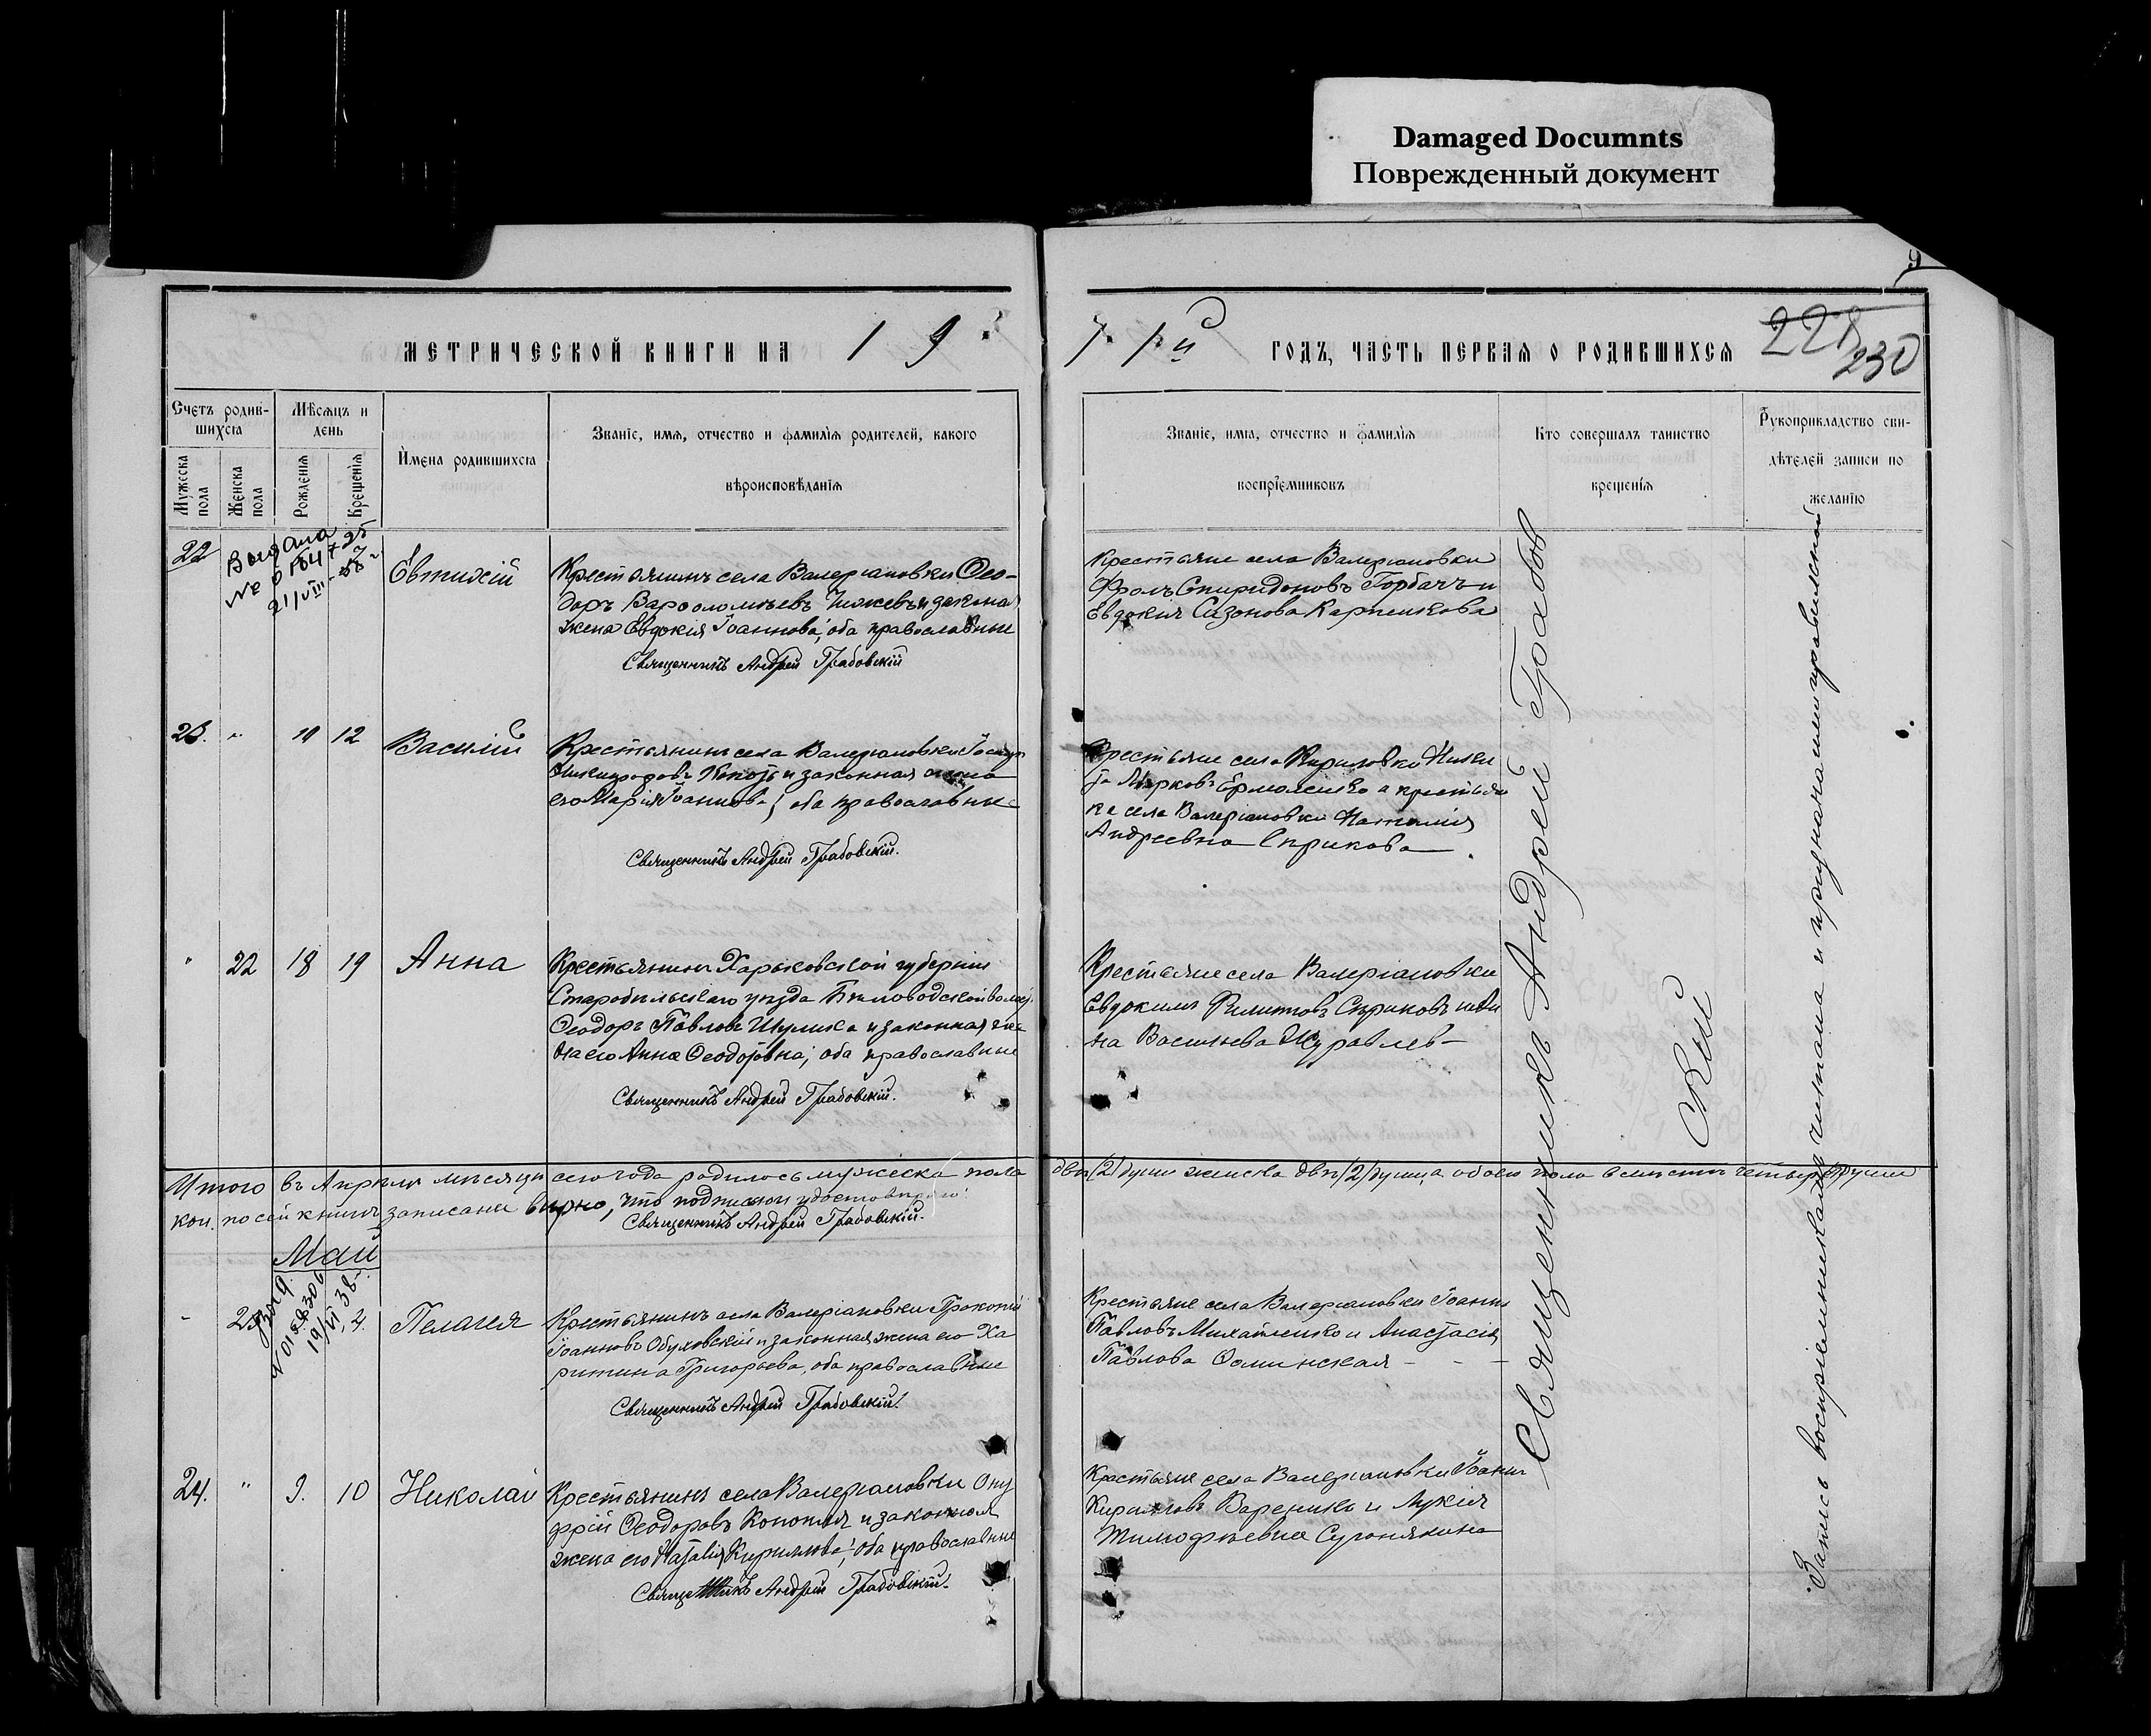 Damaged Documnts
Поврежденный документ
9
МЕТРИЧЕСКОЙ КНИГИ НА 19
1й ГОДЪ, ЧАСТЬ ПЕРВАЯ О РОДИВШИХСЯ
228
230
Счетъ родив-
шихся
Мѣсяцъ и
день
Мужеска
пола
Женска
пола
Рожденія
Крещенія
Имена родившихся
Званіе, имя, отчество и фамилія родителей, какого
вѣроисповѣданія
Званіе, имя, отчество и фамилія
воспріемниковъ
Кто совершалъ таинство
крещенія
Рукоприкладство сви-
дѣтелей записи по
желанію
22
Выдана
21/VIII-38 г
Евтихій
Крестьянинъ села Валеріановки Ѳео-
доръ Варѳоломѣевъ и законна
жена Евдокія Іоаннова, оба православные
Священникъ Андрей Грабовскій
Крестьяне села Валеріановки
Фролъ Спиридоновъ Горбачъ и
Евдокия Сазонова Карпенкова
23. " 12 Василій
Крестьянинъ села Валеріановки
Никифоровъ и законная жена
его Марія Іоаннова, оба православные
Священникъ Андрей Грабовскій.
Крестьяне села Кириловки Ники
та Марковъ Ермоленко а крестьян
ка села Валеріановки Наталия
Андреевна Сприкова
" 22 18 19 Анна
Крестьянинъ Харьковской губерніи
Старобѣльскаго уѣзда Бѣловодской волос.
Ѳеодоръ Павловъ Шулика и законная же
на его Анна Ѳеодоровна, оба православные
Священникъ Андрей Грабовскій.
Крестьяне села Валеріановки
Евдокимъ Филиповъ Сприковъ и
на Васильева Журавлев-
Итого въ Апрѣлѣ мѣсяцѣ сего года родилось мужеска пола
двѣ /2/ души женска двѣ /2/ души, а обоего пола вмѣстѣ четыре души
кои по сей книгѣ записаны вѣрно, что подписью удостовѣряю:
Священникъ Андрей Грабовскій.
Май
19/VI 38
- 4. Пелагея
Крестьянинъ села Валеріановки Прокопій
Іоанновъ Обуховскій и законная жена его Ха
ритина Григорьева, оба православные
Священникъ Андрей Грабовскій.
Крестьяне села Валеріановки Іоаннъ
Павловъ Михайленко и Анастасія
Павлова Фоминская - - -
24. " 9. 10 Николай
Крестьянинъ села Валеріановки Ону
фрій Ѳеодоровъ Конопля и законная
жена его Наталія Кириллова, оба православные
Священникъ Андрей Грабовскій.
Крестьяне села Валеріановки Іоаннъ
Кириловъ Вареникъ и Лукія
Тимофѣевна Сугонякина
Священникъ Андрей Грабов
скій
Запись воспріемникамъ читана и признана ими правильной